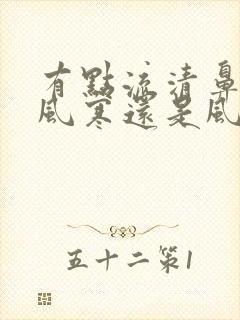 有點流清鼻
風寒還是風
五十二第1